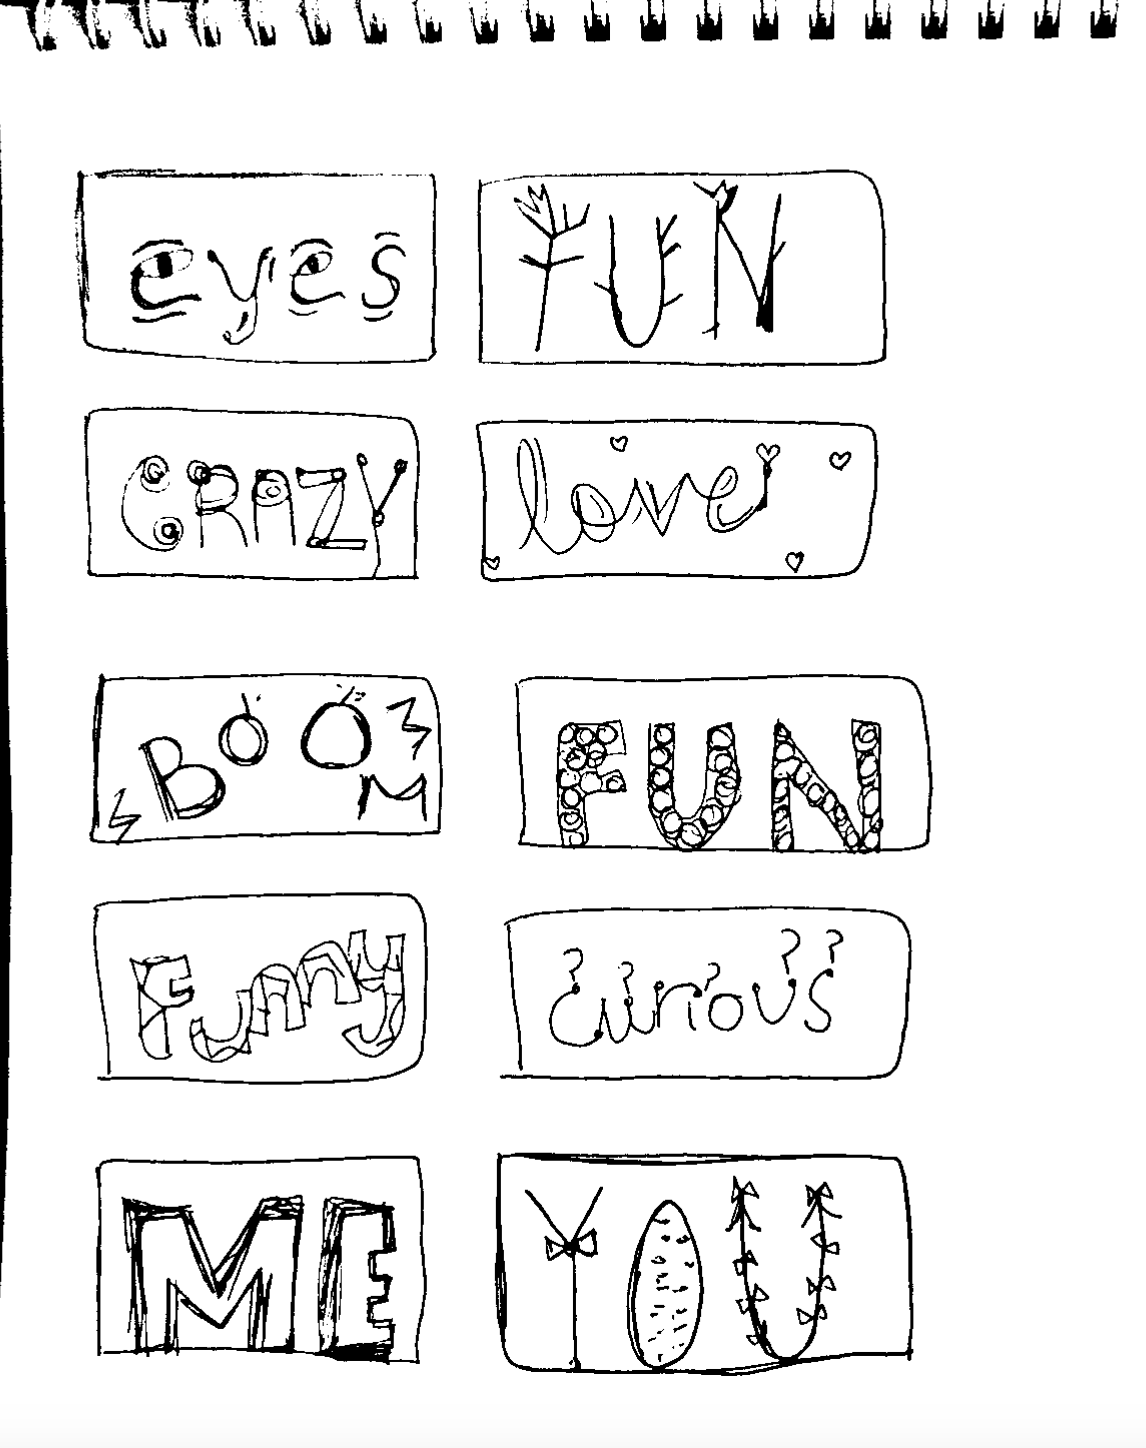 eyes
FUN
CRAZY
love
BOOM
FUN
Funny
¿curious?
ME
YOU